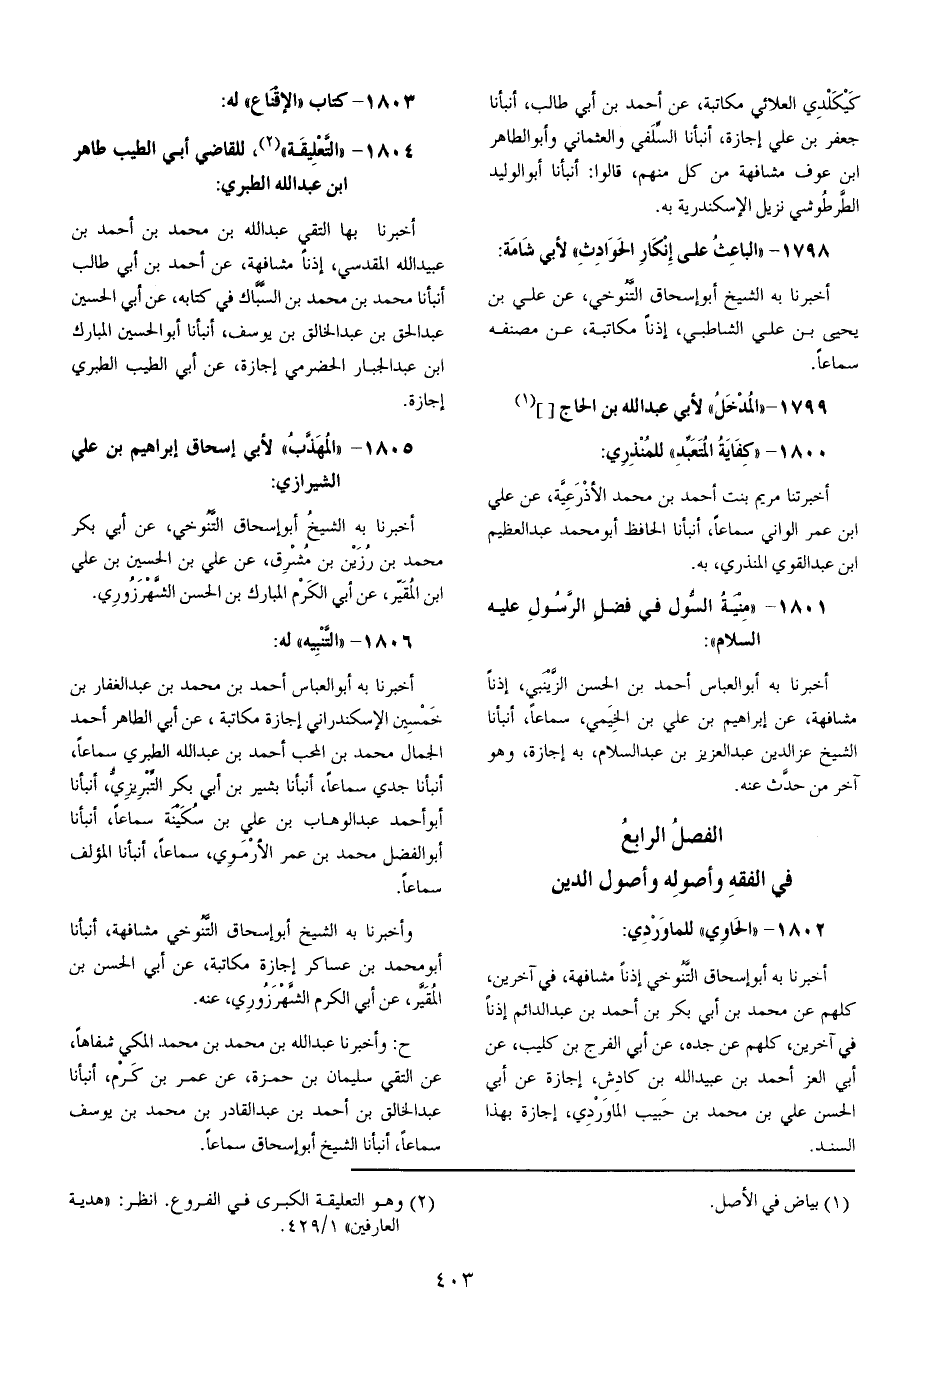 كَيْكَلْدي العلائي مكاتبة، عن أحمد بن أبي طالب، أنبأنا
جعفر بن علي إجازة، أنبأنا السِّلَفي والعثماني وأبوالطاهر
ابن عوف مشافهة من كل منهم، قالوا: أنبأنا أبوالوليد
الطَّرطُوشي نزيل الإسكندرية به.
١٧٩٨- «الباعِثُ على إنْكَارِ الحَوَادِثِ» لأبي شَامَة:
أخبرنا به الشيخ أبوإسحاق التَّنُوخي، عن علي بن
يحيى بن علي الشاطبي، إذناً مكاتبة، عن مصنفه
سماعاً.
١٧٩٩-«المُدْخَلُ» لأبي عبدالله بن الحاج [ ](١)
١٨٠٠- «كِفَايَةُ المُتَعَبِّدِ» للمُنْذِرِي:
أخبرتنا مريم بنت أحمد بن محمد الأذْرَعيَّة، عن علي
ابن عمر الواني سماعاً، أنبأنا الحافظ أبومحمد عبدالعظيم
ابن عبدالقوي المنذري، به.
١٨٠١- «مِنْيَةُ السُّول في فضلِ الرَّسُولِ عليه
السلام»:
أخبرنا به أبوالعباس أحمد بن الحسن الزَّيْنَبي، إذناً
مشافهة، عن إبراهيم بن علي بن الخِيَمي، سماعاً، أنبأنا
الشيخ عزالدين عبدالعزيز بن عبدالسلام، به إجازة، وهو
آخر من حدَّث عنه.
الفصلُ الرابعُ
في الفقهِ وأصولِه وأصول الدين
١٨٠٢- «الحَاوِي» للماوَرْدِي:
أخبرنا به أبوإسحاق التَّنُوخي إذناً مشافهة، في آخرين،
كلهم عن محمد بن أبي بكر بن أحمد بن عبدالدائم إذناً
في آخرين، كلهم عن جده، عن أبي الفرج بن كليب، عن
أبي العز أحمد بن عبيدالله بن كادِش، إجازة عن أبي
الحسن علي بن محمد بن حَبيب الماوَرْدِي، إجازة بهذا
السند.
١٨٠٣- كتاب «الإقْنَاع» له:
١٨٠٤- «التَّعْلِيقَة»(٢)، للقاضي أبي الطيب طاهر
ابن عبدالله الطبري:
أخبرنا بها التقي عبدالله بن محمد بن أحمد بن
عبيدالله المقدسي، إذناً مشافهة، عن أحمد بن أبي طالب
أنبأنا محمد بن محمد بن السبَّاك في كتابه، عن أبي الحسين
عبدالحق بن عبدالخالق بن يوسف، أنبأنا أبوالحسين المبارك
ابن عبدالجبار الحضرمي إجازة، عن أبي الطيب الطبري
إجازة.
١٨٠٥- «المُهَذَّبُ» لأبي إسحاق إبراهيم بن علي
الشيرازي:
أخبرنا به الشيخُ أبوإسحاق التَّنُوخي، عن أبي بكر
محمد بن رُزَيْن بن مُشْرِق، عن علي بن الحسين بن علي
ابن المُقَيّر، عن أبي الكَرْم المبارك بن الحسن الشَّهْرَزُوري.
١٨٠٦- «التَّنْبِيه» له:
أخبرنا به أبوالعباس أحمد بن محمد بن عبدالغفار بن
خَمْسِين الإسكندراني إجازة مكاتبة ، عن أبي الطاهر أحمد
الجمال محمد بن المحب أحمد بن عبدالله الطبري سماعاً،
أنبأنا جدي سماعاً، أنبأنا بشير بن أبي بكر التِّبْرِيزيُّ، أنبأنا
أبوأحمد عبدالوهاب بن علي بن سُكَيْنَة سماعاً، أنبأنا
أبوالفضل محمد بن عمر الأرْمَوي، سماعاً، أنبأنا المؤلف
سماعاً.
وأخبرنا به الشيخ أبوإسحاق التَّنُوخي مشافهة، أنبأنا
أبومحمد بن عساكر إجازة مكاتبة، عن أبي الحسن بن
المُقَيَّر، عن أبي الكرم الشَّهْرَزُوري، عنه.
ح: وأخبرنا عبدالله بن محمد بن محمد المكي شفاهاً،
عن التقي سليمان بن حمزة، عن عمر بن كَرَمْ، أنبأنا
عبدالخالق بن أحمد بن عبدالقادر بن محمد بن يوسف
سماعاً، أنبأنا الشيخ أبوإسحاق سماعاً.
(١) بياض في الأصل.
(٢) وهو التعليقة الكبرى في الفروع. انظر: «هدية
العارفين» ٤٢٩/١.
٤٠٣